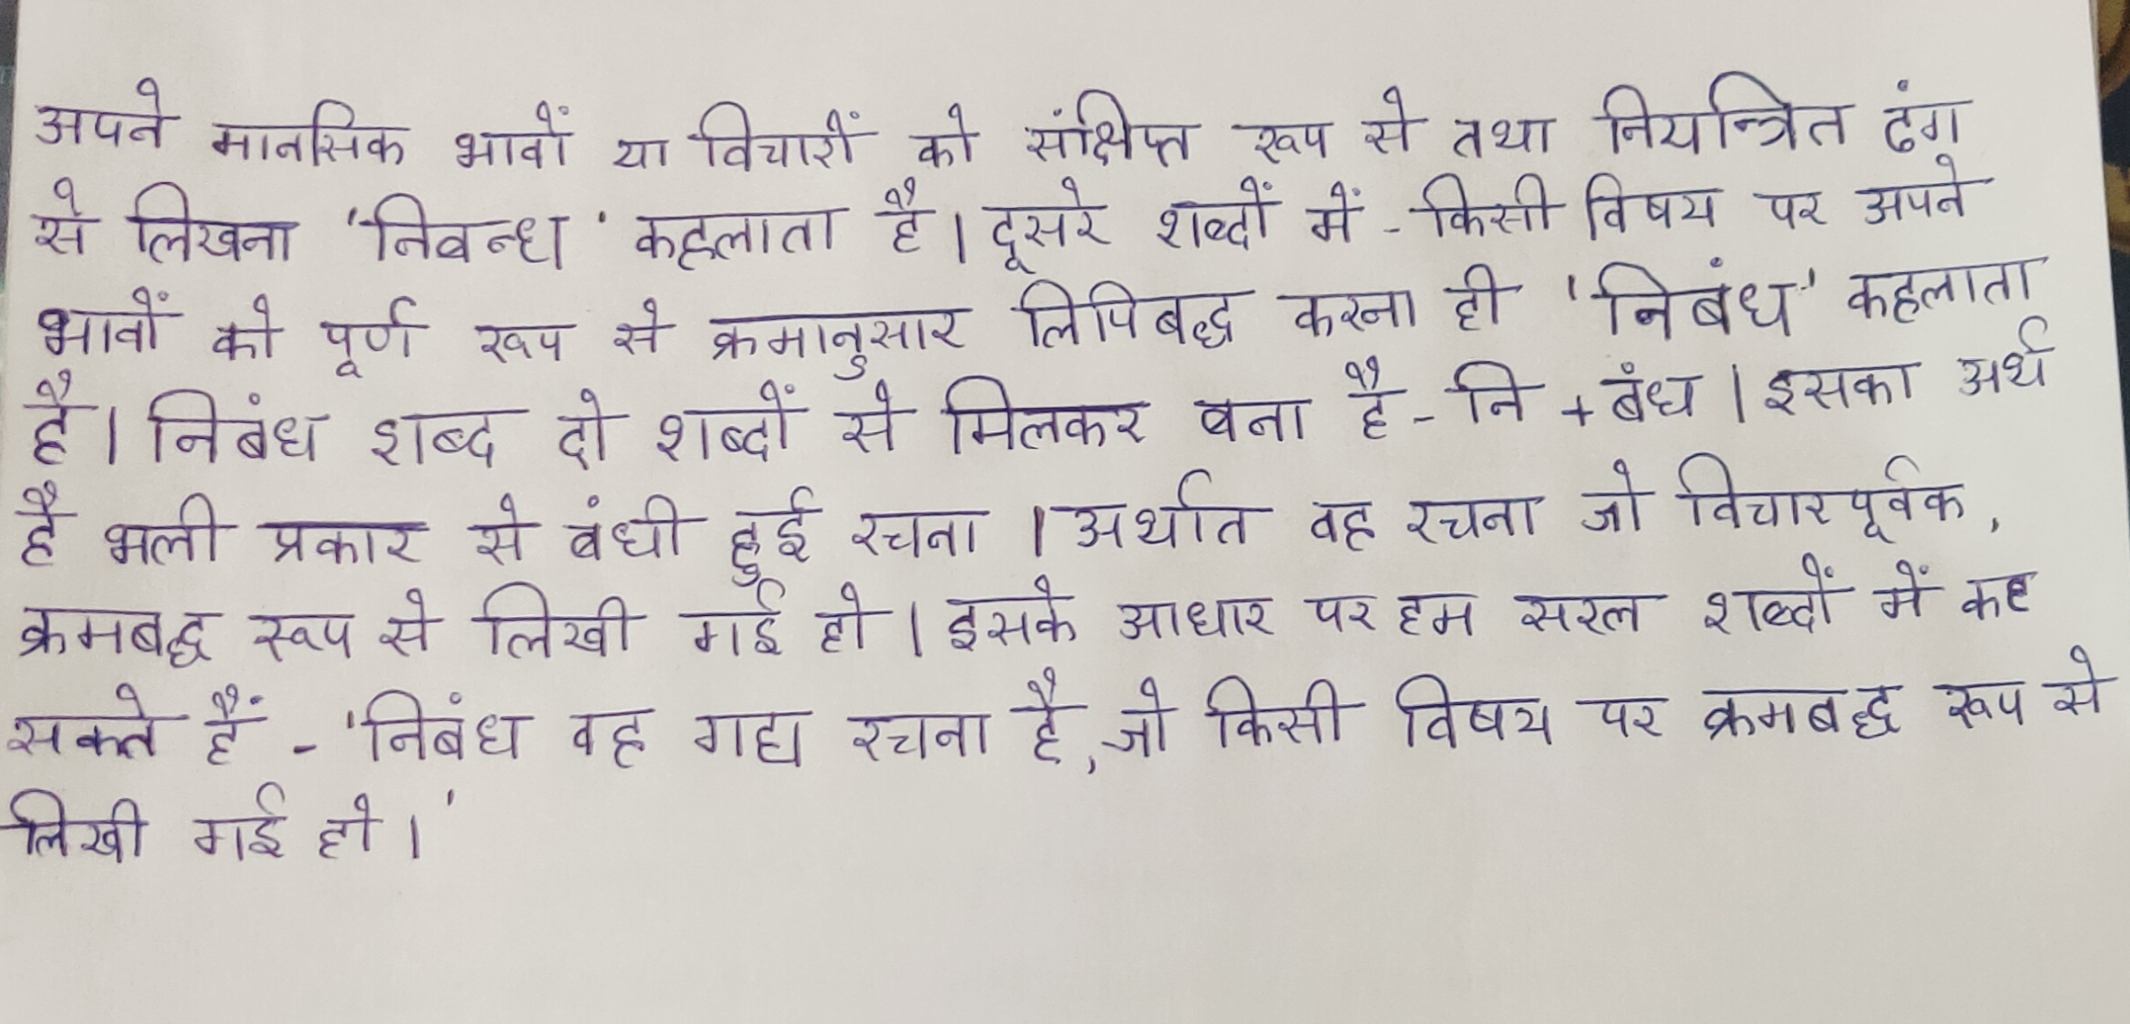 अपने मानसिक भावों या विचारों को संक्षिप्त रूप से तथा नियन्त्रित ढंग
से लिखना 'निबन्ध' कहलाता है। दूसरे शब्दों में - किसी विषय पर अपने
भावों को पूर्ण रूप से क्रमानुसार लिपिबद्ध करना ही 'निबंध' कहलाता
है। निबंध शब्द दो शब्दों से मिलकर बना है - नि + बंध। इसका अर्थ
है भली प्रकार से बंधी हुई रचना। अर्थात वह रचना जो विचारपूर्वक,
क्रमबद्ध रूप से लिखी गई हो। इसके आधार पर हम सरल शब्दों में कह
सकते हैं - 'निबंध वह गद्य रचना है, जो किसी विषय पर क्रमबद्ध रूप से
लिखी गई हो।'